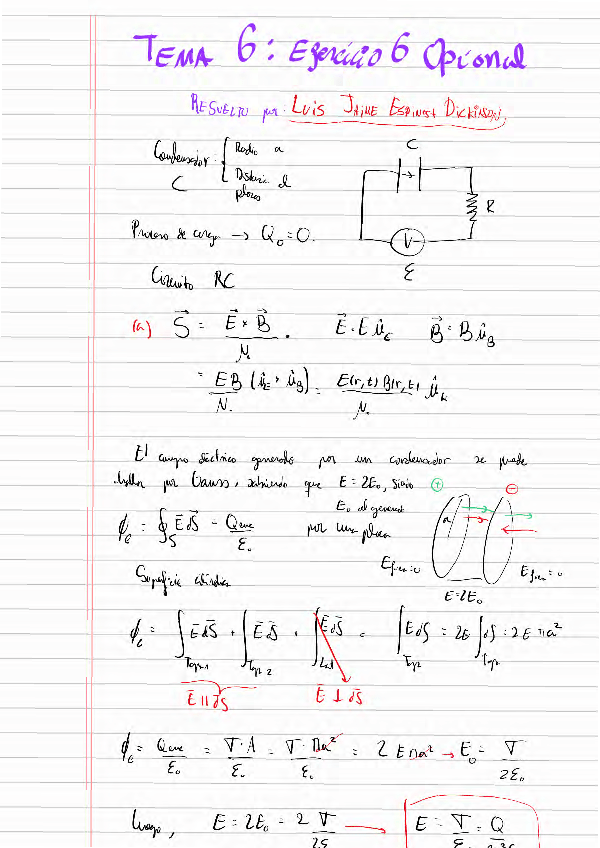 TEMA 6: Ejercicio 6 Opcional
RESUELTO por: LUIS JAIME ESPINOSA DICKINSON
Condensador C { Radio a
Distancia d placas
C
R
V
ε
Proceso de carga → Q₀ = 0.
Circuito RC
(a) S⃗ = E⃗ × B⃗ / μ₀ . E⃗ = E û_E B⃗ = B û_B
= EB / μ₀ (û_E × û_B) = E(r,t) B(r,t) / μ₀ û_k
El campo eléctrico generado por un condensador se puede
hallar por Gauss, sabiendo que E = 2E₀, siendo
E₀ el generado por una placa
⊕ ⊖
a
φ_E = ∮_S E⃗ dS⃗ = Q_enc / ε₀
E_fuera = 0 E_fuera = 0
E = 2E₀
Superficie cilíndrica
φ_E = ∫_Tapa 1 E⃗ dS⃗ + ∫_Tapa 2 E⃗ dS⃗ + ∫_Lat E⃗ dS⃗ = ∫_Tapa 2 E dS = 2E ∫_Tapa dS = 2E πa²
E⃗ || dS⃗ E⃗ ⊥ dS⃗
φ_E = Q_enc / ε₀ = σ·A / ε₀ = σ·πa² / ε₀ = 2Eπa² → E₀ = σ / 2ε₀
Luego, E = 2E₀ = 2 σ / 2ε → E = σ / ε = Q